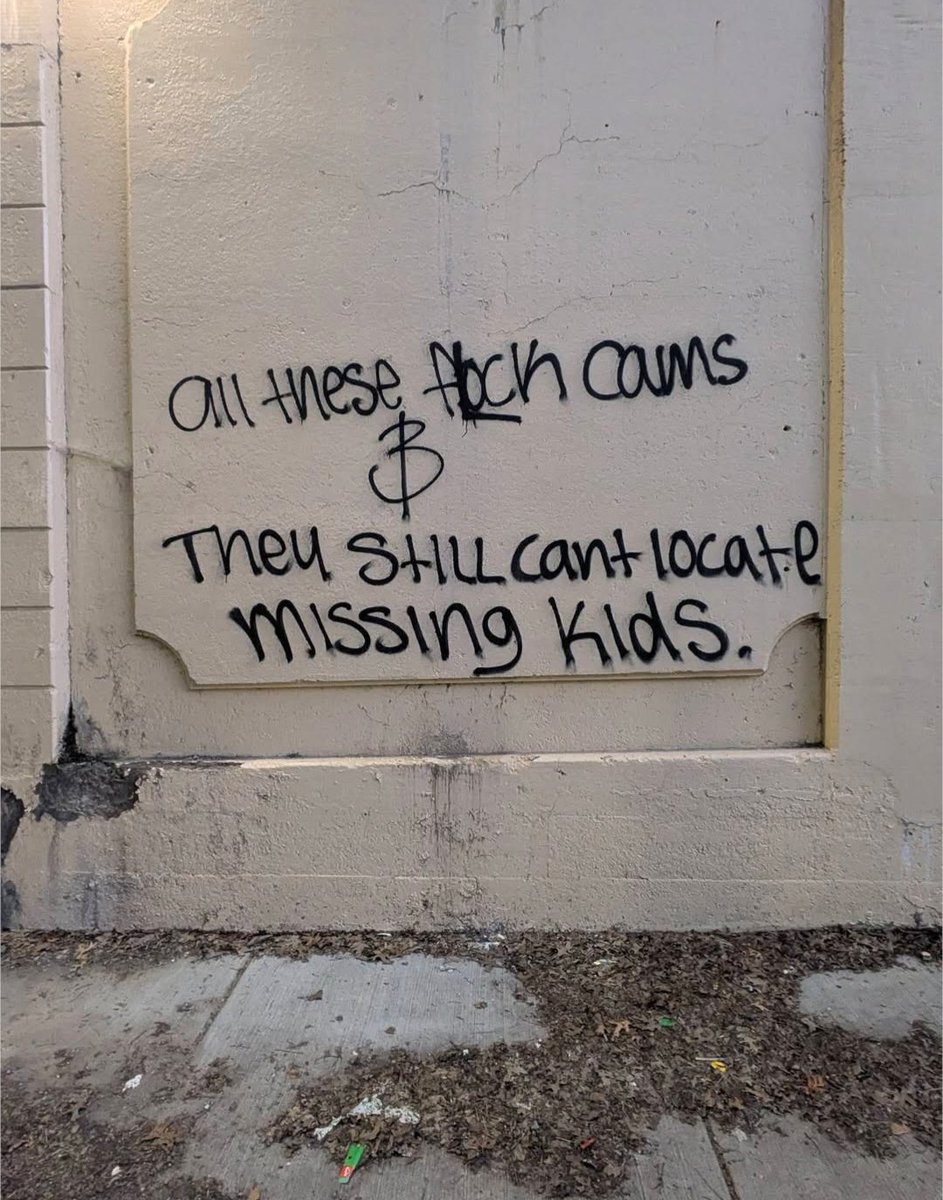 All these flock cams
&
They still cant locate
missing kids.